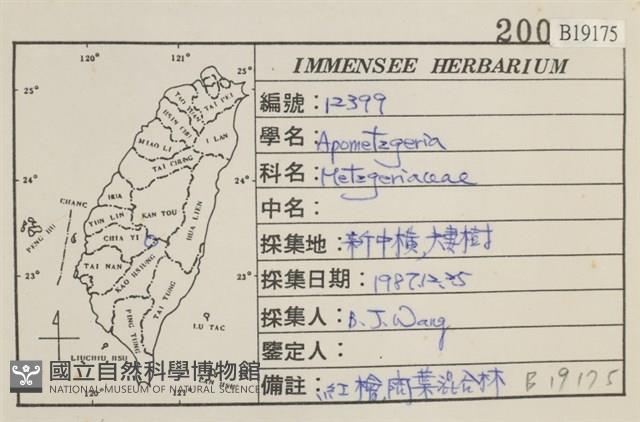 200
B19175
IMMENSEE HERBARIUM
編號：12399
學名：Apometzgeria
科名：Metzgeriaceae
中名：
採集地：新中橫，夫妻樹
採集日期：1987.12.25
採集人：B. J. Wang
鑒定人：
備註：紅檜，闊葉混合林 B 19175
120° 121°
25° 25°
24° 24°
23° 23°
TAO YUAN
TAI PEI
HSIN CHU
I LAN
MIAO LI
TAI CHUNG
CHANG HUA
KAN TOU
HUA LIEN
YUN LIN
CHIA YI
PENG HU
TAI NAN
KAO HSIUNG
TAI TUNG
PING TUNG
LU TAC
LIUCHIU HSU
120° 121°
國立自然科學博物館
NATIONAL MUSEUM OF NATURAL SCIENCE